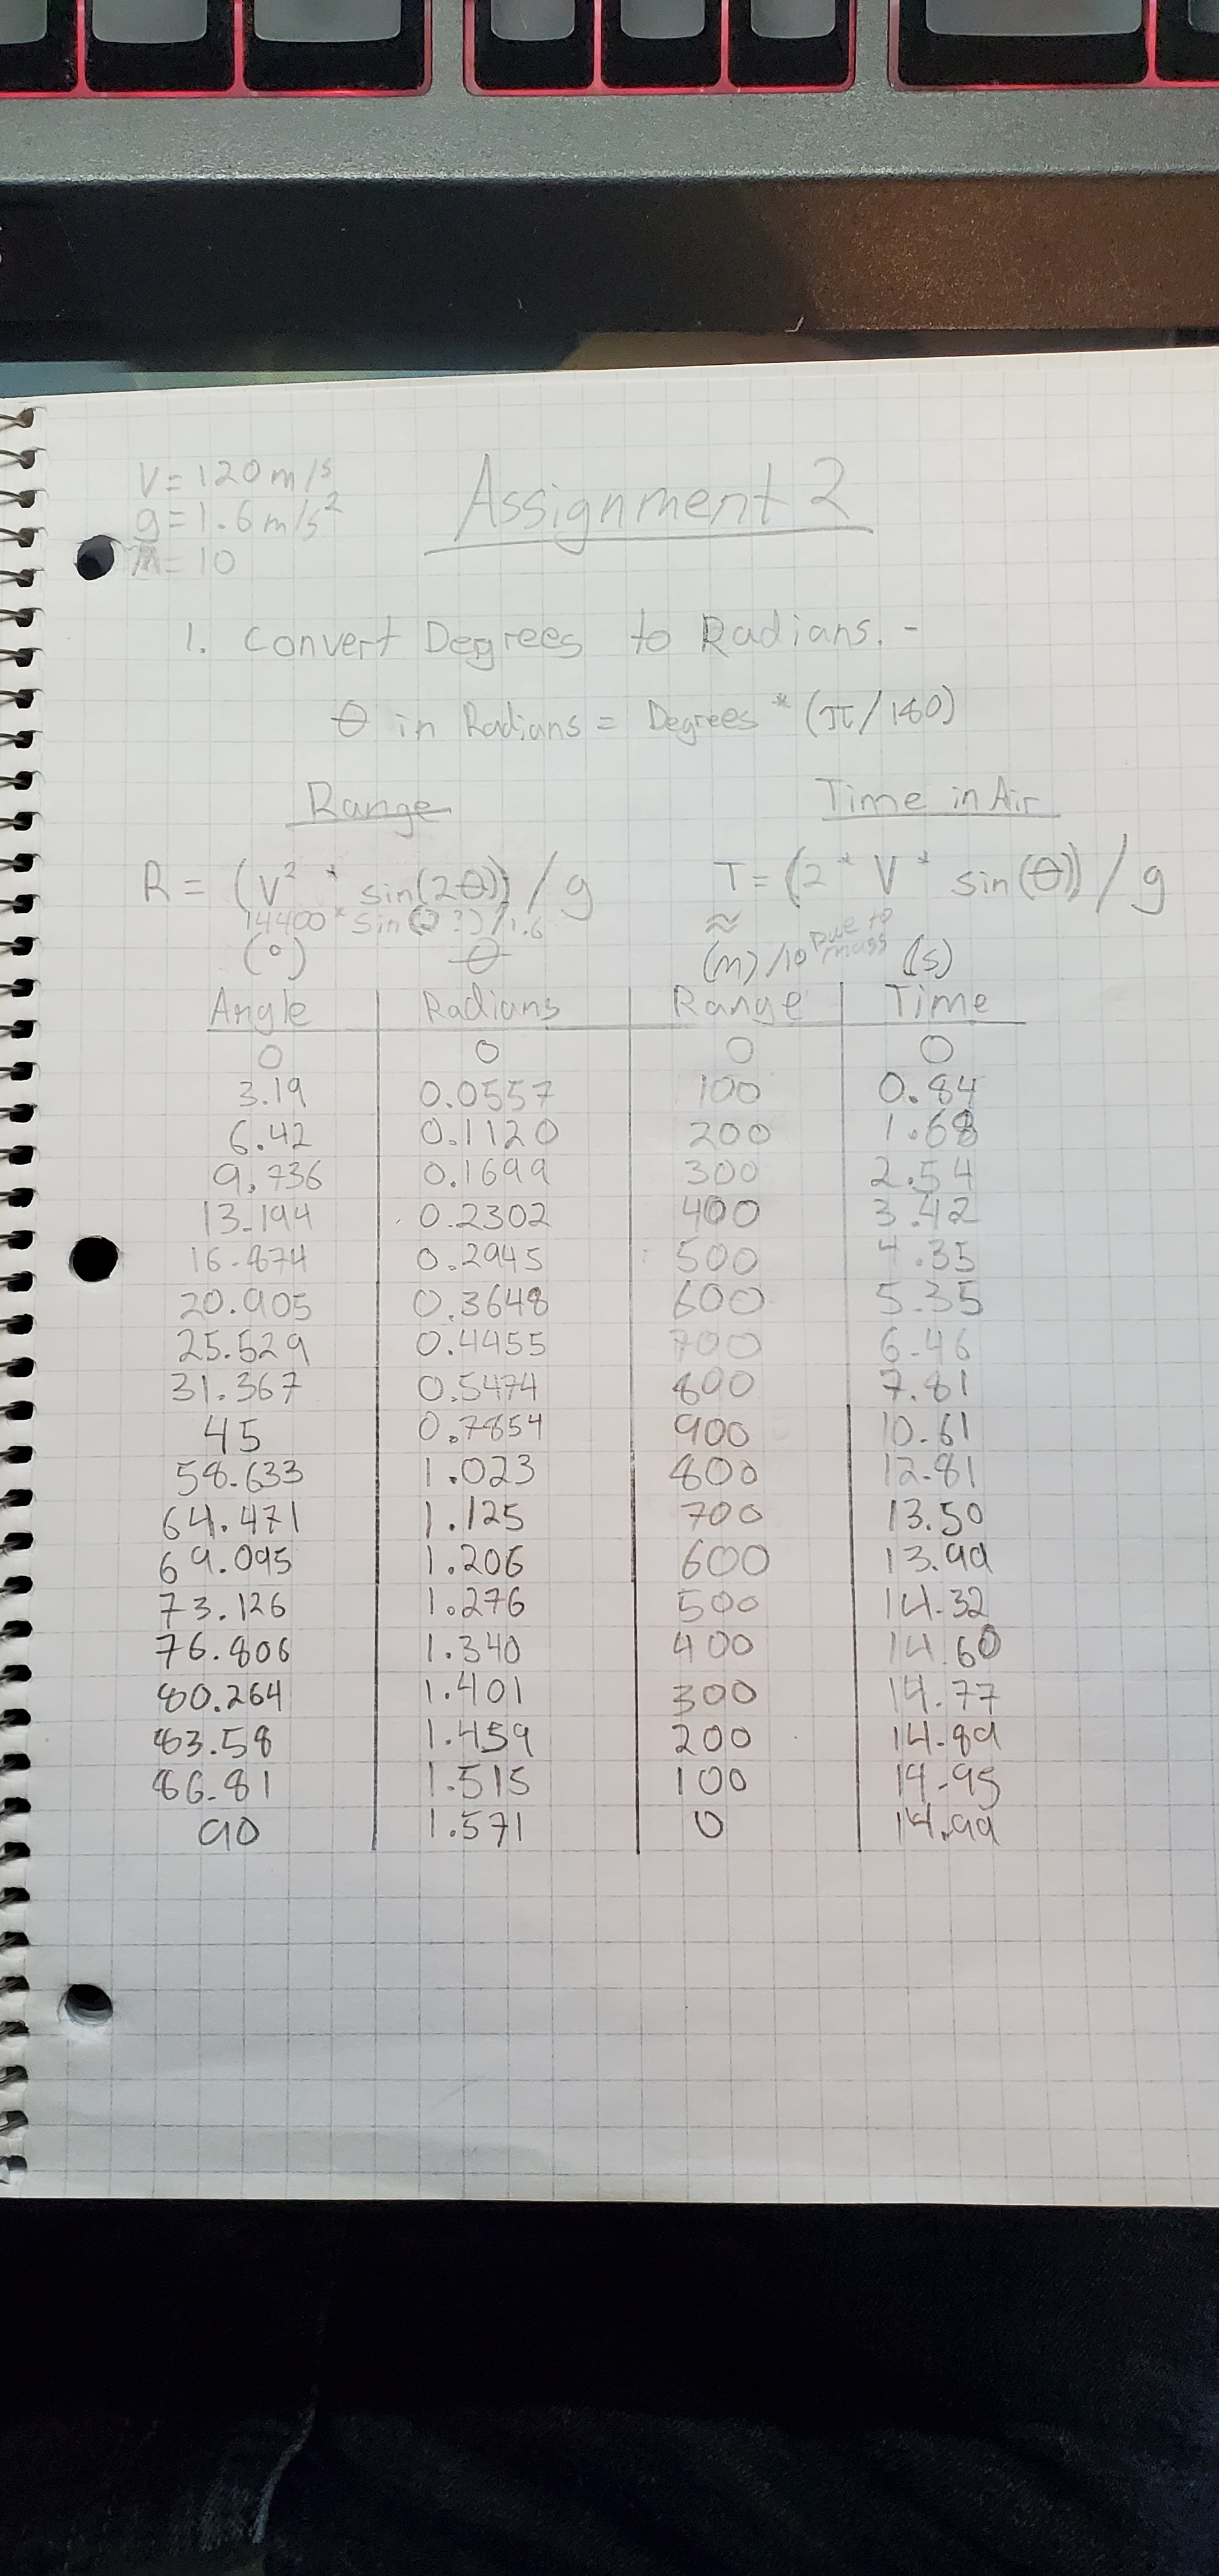 V = 120 m/s
Assignment 2
g = 1.6 m/s²
m = 10
1. Convert Degrees to Radians. -
θ in Radians = Degrees * (π/180)
Range
Time in Air
R = (V² * sin(2θ)) / g
T = (2 * V * sin(θ)) / g
14400 * sin(2?) / 1.6
≈
(°) θ (m) /10 Due to mass (s)
Angle Radians Range Time
0 0 0 0
3.19 0.0557 100 0.84
6.42 0.1120 200 1.68
9.736 0.1699 300 2.54
13.194 0.2302 400 3.42
16.874 0.2945 500 4.35
20.905 0.3648 600 5.35
25.529 0.4455 700 6.46
31.367 0.5474 800 7.81
45 0.7854 900 10.61
58.633 1.023 800 12.81
64.471 1.125 700 13.50
69.095 1.206 600 13.99
73.126 1.276 500 14.32
76.806 1.340 400 14.60
80.264 1.401 300 14.77
83.58 1.459 200 14.89
86.81 1.515 100 14.95
90 1.571 0 14.99